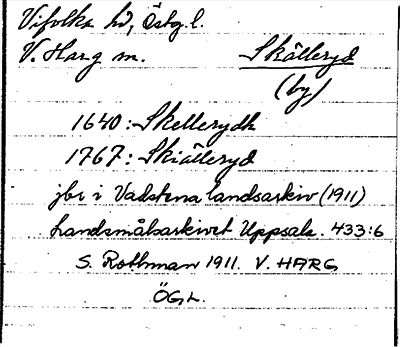 Vifolka hd, Östg. l.
V. Harg sn. Skälleryd
(by)
1640: Skellerydh
1767: Skiälleryd
jbr i Vadstena landsarkiv (1911)
Landsmålsarkivet Uppsala. 433:6
S. Rothman 1911. V. HARG
ÖGL.